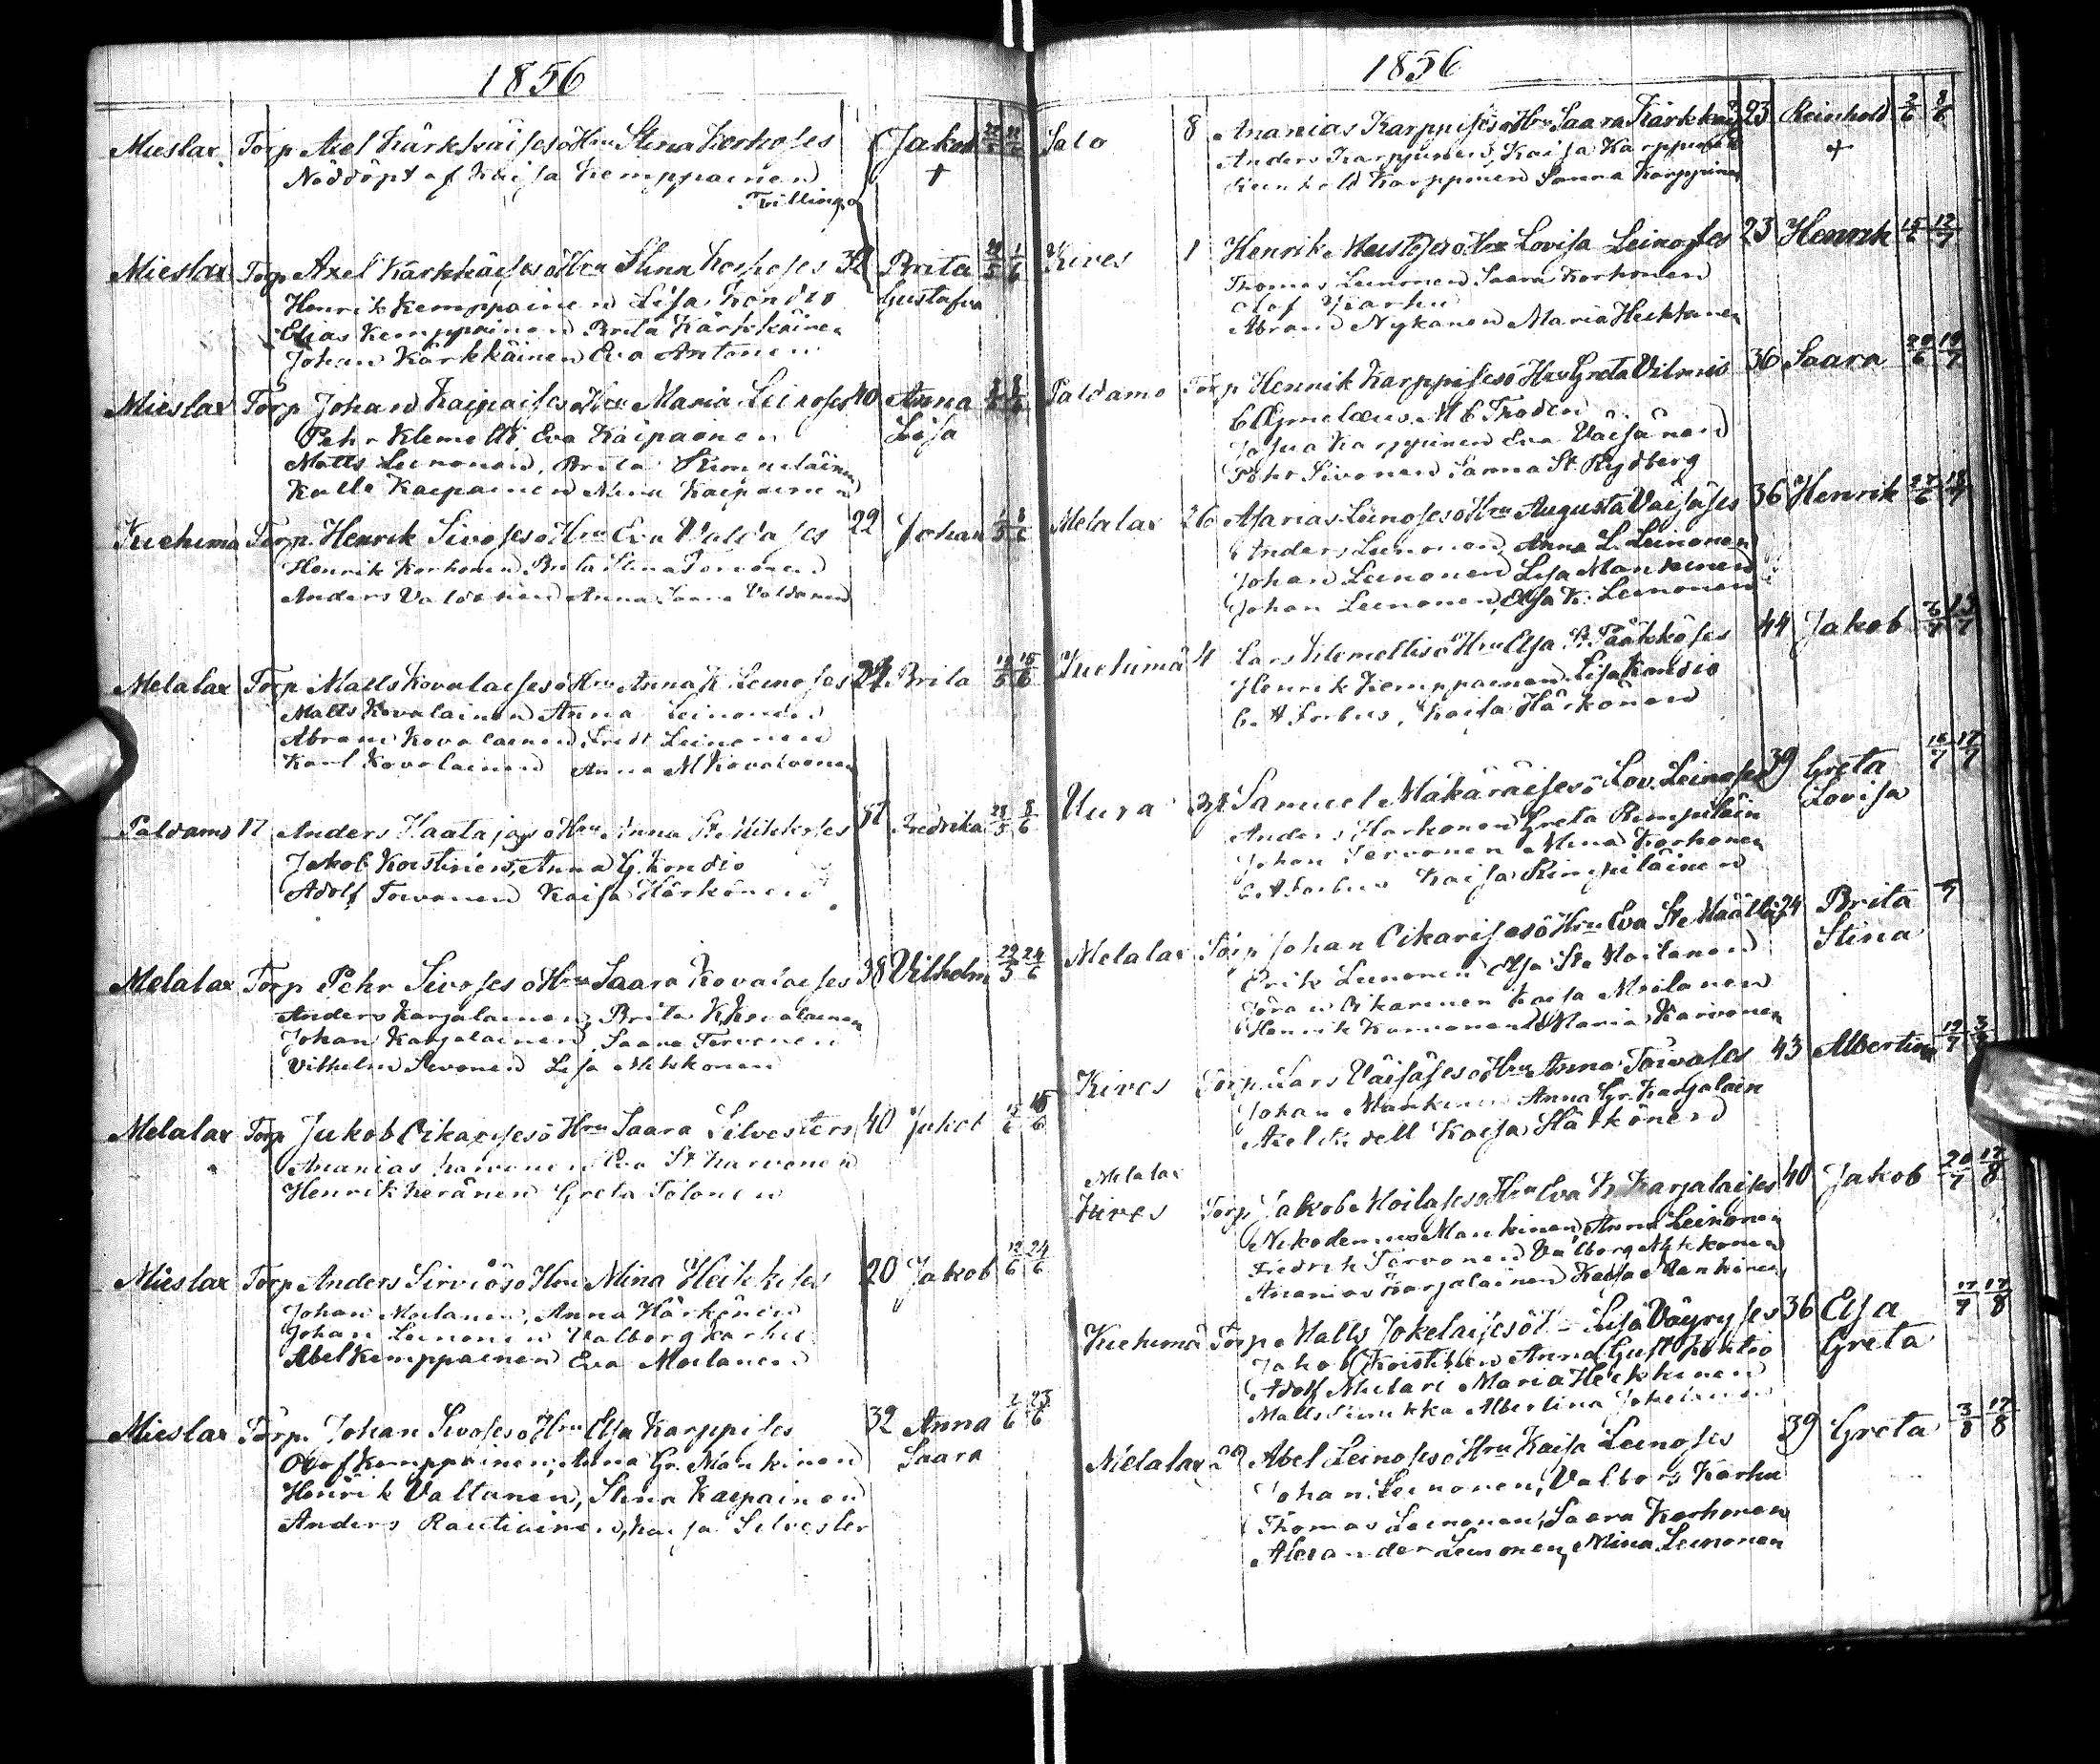 1856
Mieslax Torp Axel Kärkkäises o Hru Stina Korhoses Jakob
Nöddöpt af Kaisa Kemppainen +
Trillingar
Mieslax Torp Axel Kärkkäises o Hru Stina Korhoses 32 Brita 29/5 1/6
Henrik Kemppainen Lisa Kondio Gustafva
Elias Kemppainen Brita Kärkkäinen
Johan Kärkkäinen Eva Antonen
Mieslax Torp Johan Kaipaises o Hru Maria Leinoses 40 Anna
Pehr Klemetti Eva Kaipainen Lisa
Matts Leinonen, Brita
Kalle Kaipainen Mina Kaipainen
Kuehima Torp Henrik Sivoses o Hru Eva Valdases 22 Johan
Henrik Korhonen Brita Stina
Anders Valdanen Anna Saara Valdanen
Melalax Torp Matts Kovalaises o Hru Anna K Leinoses 24 Brita 19/5 15/6
Matts Kovalainen Anna Leinonen
Abram Kovalainen Leinonen
Karl Kovalainen Anna M Kovalainen
Paldamo 17 Anders Haatajas o Hru Anna St Mikkoses Fredrika 28/5 8/6
Jakob Koistinen, Anna G. Kondio
Adolf Toivonen Kaisa Härkönen
Melalax Torp Pehr Sivoses o Hru Saara Kovalaises 38 Vilhelm 29/5 24/6
Anders Karjalainen, Brita K Kovalainen
Johan Karjalainen Saara Tervonen
Vilhelm Sivonen Lisa Mikkonen
Melalax Torp Jakob Oikarises o Hru Saara Silvesters 40 Jakob
Ananias Karvonen Eva St Karvonen
Henrik Keränen Greta Tolonen
Mieslax Torp Anders Sirviös o Hru Mina Heikkises 20 Jakob 12/6 24/6
Johan Moilanen, Anna Härkönen
Johan Leinonen Valborg Karhu
Abel Kemppainen Eva Moilanen
Mieslax Torp. Johan Sivoses o Hru Elsa Karppises 32 Anna 2/6 23/6
Olof Kemppainen, Anna Gr. Mankinen Saara
Henrik Valtanen, Stina Kaipainen
Anders Rautiainen, Kaisa Silvester
1856
Salo 8 Ananias Karppises o Hru Saara Kärkkäi 23 Reinhold 2/6 8/6
Anders Karppinen, Kaisa Karppinen +
Reinhold Karppinen Sanna Karppinen
Kives 1 Henrik o Hru Lovisa Leinoses 23 Henrik 15/6 12/7
Thomas Leinonen Saara Korhonen
Olof Karhu
Abram Nykanen Maria Heikkanen
Paldamo Torp Henrik Karppises o Hru Greta Vilmis 36 Saara
Josua Karppinen Eva Väisänen
Pehr Sivonen Sanna St Rydberg
Melalax 26 Asarias Leinoses o Hru Augusta Väisäses 36 Henrik
Anders Leinonen, Anna L. Leinonen
Johan Leinonen Lisa Mankinen
Johan Leinonen, Elsa K. Leinonen
Kuehima 4 Lars Klemettis o Hru Elsa St. Pääkköses 44 Jakob
Henrik Kemppainen Lisa Kondio
C. A Forbus, Kaisa Härkönen
Uura Samuel Mäkäräises o Lov. Leinoses 39 Greta 16/7 17/7
Anders Harkonen Greta Rimpiläin Lovisa
Johan Tervonen Mina Korhonen
C. A Forbus Kaisa Rimpiläinen
Melalax Torp Johan Oikarises o Hru Eva St. Määttäs 24 Brita
Erik Leinonen Elsa St. Moilanen Stina
Jöran Oikarinen Kaisa Moilanen
Henrik Karvonen Maria Karvonen
Kives Torp. Lars Väisäses o Hru Anna Toivoses 43 Albertina
Johan Mankinen Anna Gr. Karjalain
Axel Kaisa Härkönen
Melalax
Kives Torp Jakob Moilases o Hru Eva K. Karjalaises 40 Jakob 20/7 17/8
Nikodemus Mankinen, Anna Leinonen
Fredrik Tervonen Valborg Mykkonen
Ananias Karjalainen Kaisa Mankinen
Kuehima Torp Matts Jokelaises o H- Lisa Väyryses 36 Elsa 17/7 17/8
Jakob Koistinen Anna Gust Kontio Greta
Adolf Mulari Maria Heikkinen
Matts Albertina
Melalax 28 Abel Leinoses o Hru Kaisa Leinoses 39 Greta 3/8 17/8
Johan Leinonen, Valborg Karhu
Thomas Leinonen, Saara Korhonen
Alexander Leinonen, Mina Leinonen